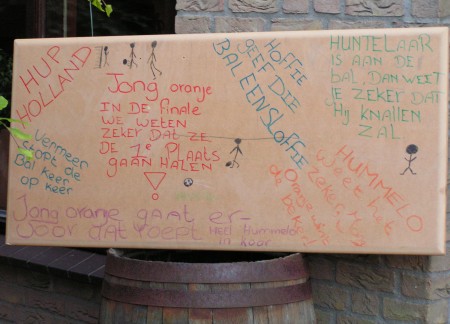 HUP
HOLLAND
Jong oranje
IN DE finale
WE WETEN
ZEKER DAT ZE
DE 1e PLaats
GAAN HALEN
!
HOFFIE
GEEF DIE
BAL EEN SLOFFIE
HUNTELAAR
IS AAN DE
bal, DAN WEET
JE ZEKER DAT
Hij KNALLEN
ZAL
Vermeer
stopt de
Bal keer
op keer
HUMMELO
weet het
zeker
Oranje wint
de beker!
Jong oranje gaat er-
voor dat roept HEEL Hummelo
in koor